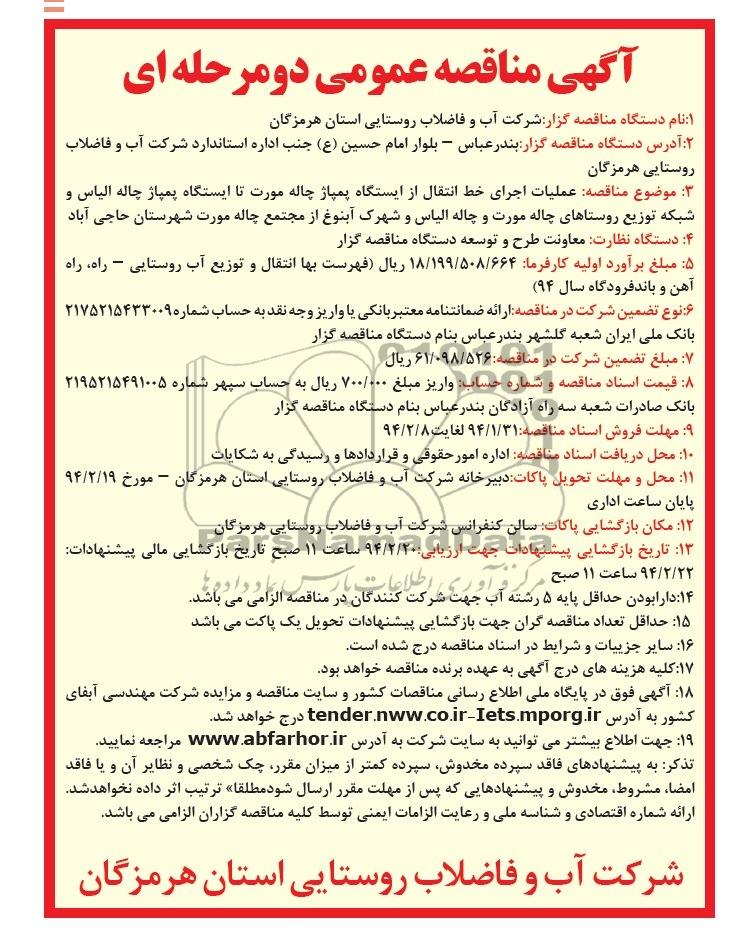 آگهی مناقصه عمومی دومرحله ای
۱:نام دستگاه مناقصه گزار:شرکت آب و فاضلاب روستایی استان هرمزگان
۲:آدرس دستگاه مناقصه گزار:بندرعباس – بلوار امام حسین (ع) جنب اداره استاندارد شرکت آب و فاضلاب
روستایی هرمزگان
۳: موضوع مناقصه: عملیات اجرای خط انتقال از ایستگاه پمپاژ چاله مورت تا ایستگاه پمپاژ چاله الیاس و
شبکه توزیع روستاهای چاله مورت و چاله الیاس و شهرک آبنوغ از مجتمع چاله مورت شهرستان حاجی آباد
۴: دستگاه نظارت: معاونت طرح و توسعه دستگاه مناقصه گزار
۵: مبلغ برآورد اولیه کارفرما: ۱۸/۱۹۹/۵۰۸/۶۶۴ ریال (فهرست بها انتقال و توزیع آب روستایی – راه، راه
آهن و باندفرودگاه سال ۹۴)
۶:نوع تضمین شرکت در مناقصه:ارائه ضمانتنامه معتبربانکی یا واریز وجه نقد به حساب شماره ۲۱۷۵۲۱۵۴۳۳۰۰۹
بانک ملی ایران شعبه گلشهر بندرعباس بنام دستگاه مناقصه گزار
۷: مبلغ تضمین شرکت در مناقصه:۶۱/۰۹۸/۵۲۶ ریال
۸: قیمت اسناد مناقصه و شماره حساب: واریز مبلغ ۷۰۰/۰۰۰ ریال به حساب سپهر شماره ۲۱۹۵۲۱۵۴۹۱۰۰۵
بانک صادرات شعبه سه راه آزادگان بندرعباس بنام دستگاه مناقصه گزار
۹: مهلت فروش اسناد مناقصه:۹۴/۱/۳۱ لغایت۹۴/۲/۸
۱۰: محل دریافت اسناد مناقصه: اداره امورحقوقی و قراردادها و رسیدگی به شکایات
۱۱: محل و مهلت تحویل پاکات:دبیرخانه شرکت آب و فاضلاب روستایی استان هرمزگان – مورخ ۹۴/۲/۱۹
پایان ساعت اداری
۱۲: مکان بازگشایی پاکات: سالن کنفرانس شرکت آب و فاضلاب روستایی هرمزگان
۱۳: تاریخ بازگشایی پیشنهادات جهت ارزیابی:۹۴/۲/۲۰ ساعت ۱۱ صبح تاریخ بازگشایی مالی پیشنهادات:
۹۴/۲/۲۲ ساعت ۱۱ صبح
۱۴:دارابودن حداقل پایه ۵ رشته آب جهت شرکت کنندگان در مناقصه الزامی می باشد.
۱۵: حداقل تعداد مناقصه گران جهت بازگشایی پیشنهادات تحویل یک پاکت می باشد
۱۶: سایر جزییات و شرایط در اسناد مناقصه درج شده است.
۱۷:کلیه هزینه های درج آگهی به عهده برنده مناقصه خواهد بود.
۱۸: آگهی فوق در پایگاه ملی اطلاع رسانی مناقصات کشور و سایت مناقصه و مزایده شرکت مهندسی آبفای
کشور به آدرس tender.nww.co.ir-Iets.mporg.ir درج خواهد شد.
۱۹: جهت اطلاع بیشتر می توانید به سایت شرکت به آدرس www.abfarhor.ir مراجعه نمایید.
تذکر: به پیشنهادهای فاقد سپرده مخدوش، سپرده کمتر از میزان مقرر، چک شخصی و نظایر آن و یا فاقد
امضا، مشروط، مخدوش و پیشنهادهایی که پس از مهلت مقرر ارسال شودمطلقا» ترتیب اثر داده نخواهدشد.
ارائه شماره اقتصادی و شناسه ملی و رعایت الزامات ایمنی توسط کلیه مناقصه گزاران الزامی می باشد.
شرکت آب و فاضلاب روستایی استان هرمزگان
ParsNamadData
مرکز فرآوری اطلاعات پارس نماد داده ها